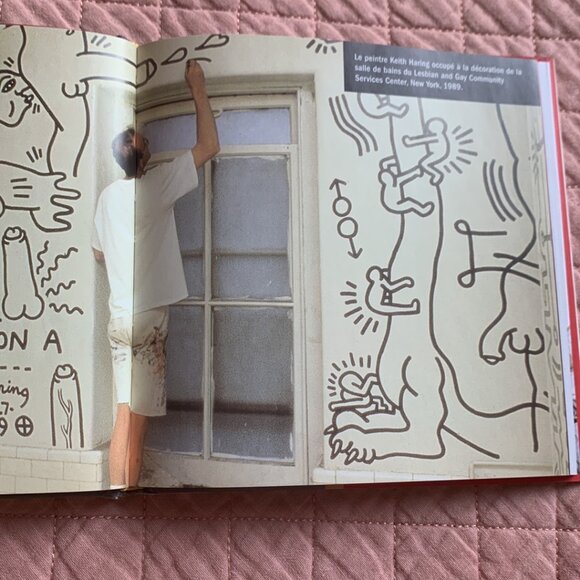 Le peintre Keith Haring occupé à la décoration de la
salle de bains du Lesbian and Gay Community
Services Center, New York, 1989.
ON A